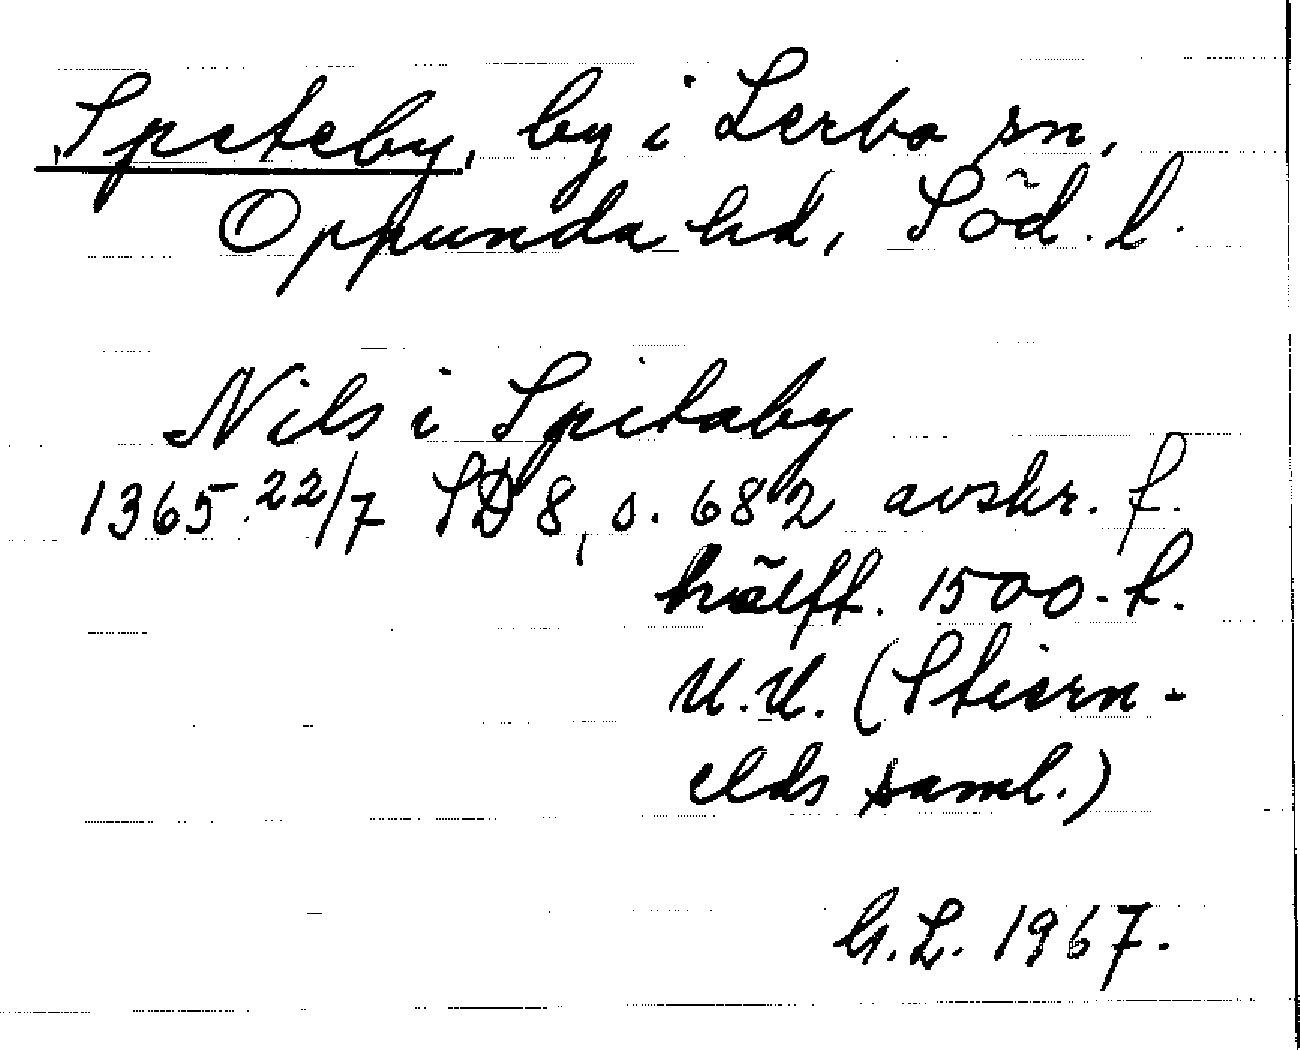 Speteby, by i Lerbo sn,
Oppunda hd, Söd. l.
Nils i Spitaby
1365 22/7 SD 8, s. 682 avskr. f.
hälft. 1500-t.
U.U. (Stiern-
elds saml.)
G.L. 1967.